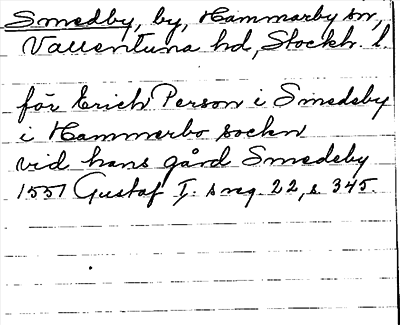 Smedby, by, Hammarby sn,
Vallentuna hd, Stockh. l.
för Erich Person i Smedeby
i Hammerbo sockn
vid hans gård Smedeby
1551 Gustaf I. s reg. 22, s. 345.